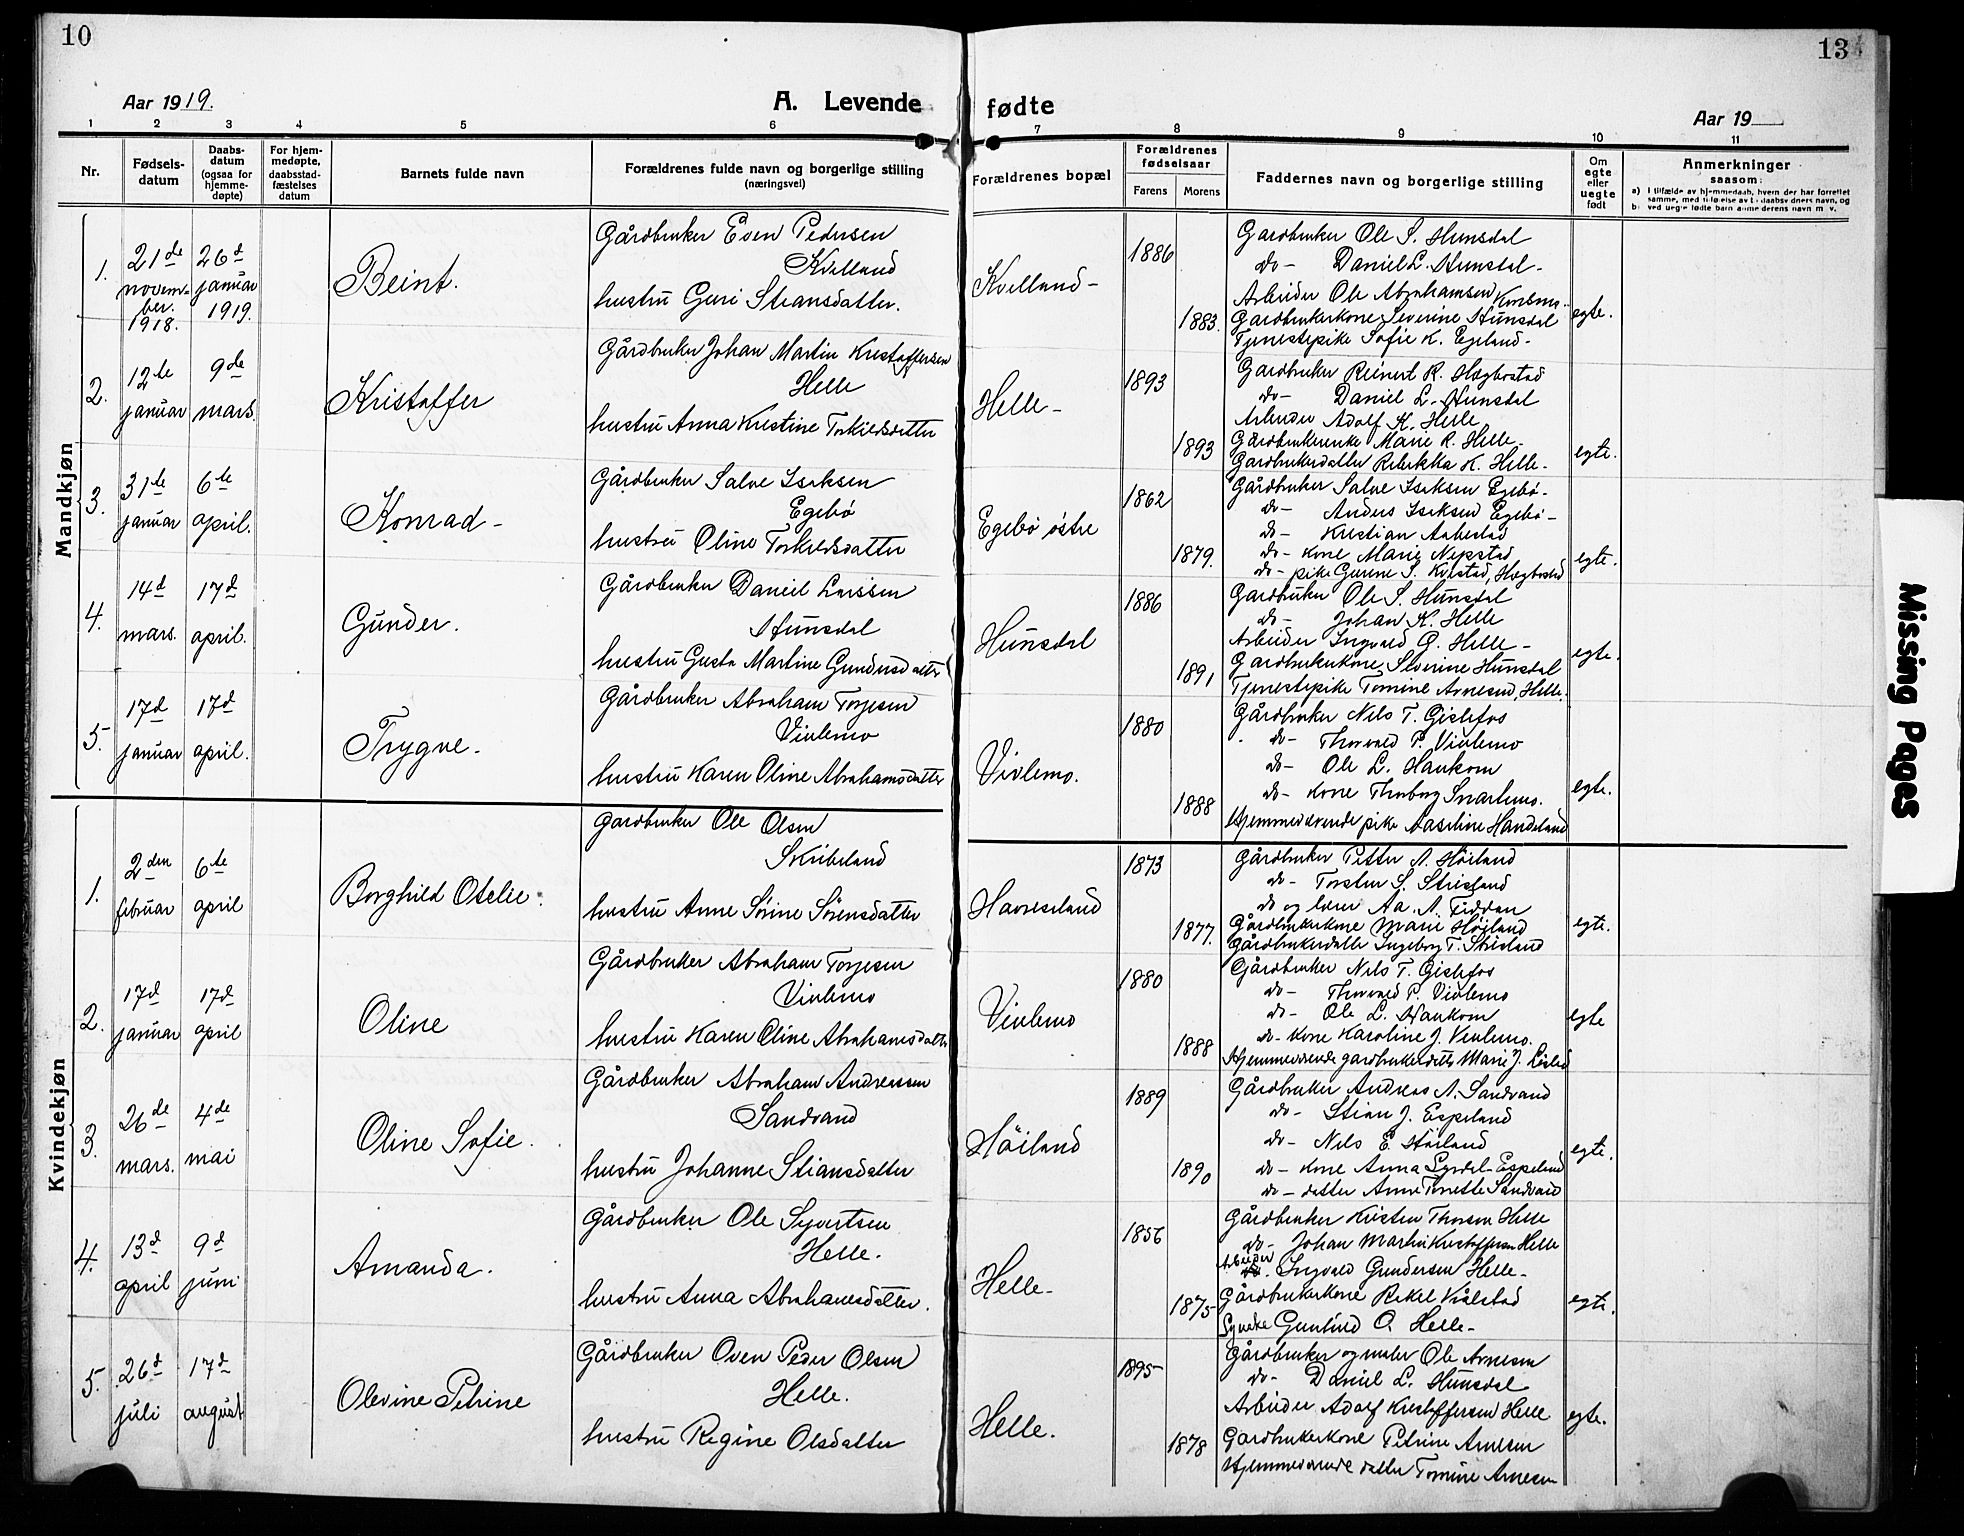 10
13
Aar 1919.
A. Levende fødte
Aar 19
1 2 3 4 5 6 7 8 9 10 11
Nr.
Fødsels-
datum
Daabs-
datum
(ogsaa for
hjemme-
døpte)
For hjem-
medøpte,
daabsstad-
fæstelses
datum
Barnets fulde navn
Forældrenes fulde navn og borgerlige stilling
(næringsvei)
Forældrenes bopæl
Forældrenes
fødselsaar
Farens Morens
Faddernes navn og borgerlige stilling
Om
egte
eller
uegte
født
Anmerkninger
saasom:
Mandkjøn
1.
21de
novem-
ber.
1918.
26d
januar
1919.
Beint.
Gårdbruker Even Pedersen
Kvelland
hustru Guri Stiansdatter.
Kvelland-
1886
1883.
Gardbruker Ole S. Hunsdal
do- Daniel L. Hunsdal-
Arbeider Ole Abrahamsen
Gardbrukerkone Severine Hunsdal
Tjenestepike Sofie K. Egeland-
egte.
2.
12te
januar
9de
mars.
Kristoffer
Gårdbruker Johan Martin Kristoffersen
Helle
hustru Anna Kristine Torkildsdatter
Helle-
1893
1893
Gardbruker Reinert R. Hægbostad
do- Daniel L. Hunsdal
Arbeider Adolf K. Helle
Gårdbrukerenke Marie R. Helle-
Gardbrukerdatter Rebekka K. Helle-
egte.
3.
31te
januar
6te
april.
Konrad-
Gårdbruker Salve Isaksen
Egebø
hustru Oline Torkildsdatter
Egebø østre
1862
1879.
Gårdbruker Salve Isaksen Egebø-
do- Anders Isaksen Egebø-
do- Kristian
do- kone Marie Nepstad
do- pike Gurine S. Hægbostad
egte.
4.
14d
mars.
17d
april.
Gunder.
Gårdbruker Daniel Larssen
Hunsdal
hustru Gusta Martine Gundersdatter
Hunsdal
1886
1891
Gardbruker Ole S. Hunsdal
do- Johan K. Helle
Arbeider Ingvald G. Helle-
Gardbrukerkone Severine Hunsdal
Tjenestepike Tomine Arnesen, Helle.
egte.
5.
17d
januar
17d
april.
Trygve-
Gårdbruker Abraham Torjesen
Vivlemo
hustru Karen Oline Abrahamsdatter
Vivlemo.
1880
1888
Gårdbruker Nils T. Gislefos
do- Thorvald P. Vivlemo
do- Ole L. Haukom
do- kone Thorborg Snartemo.
Hjemmeværende pike Aaseline Handeland
egte.
Kvindekjøn
1.
2den
februar
6te
april
Borghild Otelie.
Gardbruker Ole Olsen
Skibeland
hustru Anne Sørine Sørensdatter
Havreseland
1873
1877.
Gårdbruker Petter N. Høiland
do- Torsten S. Strisland
do og lærer Aa. N. Fiddan
Gårdbrukerkone Marie Høiland
Gårdbrukerdatter Ingeborg T. Strisland
egte.
2.
17d
januar
17d
april
Oline
Gårdbruker Abraham Torjesen
Vivlemo
hustru Karen Oline Abrahamsdatter
Vivlemo
1880
1888
Gårdbruker Nils T. Gislefos
do- Thorvald P. Vivlemo
do- Ole L. Haukom
do- kone Karoline J. Vivlemo.
Hjemmeværende gardbrukerdatter Marie J.
egte
3.
26de
mars.
4de
mai
Oline Sofie.
Gårdbruker Abraham Andreassen
Sandvand
hustru Johanne Stiansdatter
Høiland
1889
1890
Gårdbruker Andreas A. Sandvand
do- Stian J. Espeland
do- Nils E. Høiland
do- kone Anna Lyrdal-Espeland
do- datter Anne Tonette Sandvand
egte.
4.
13d
april
9d
juni
Amanda.
Gårdbruker Ole Syvertsen
Helle.
hustru Anna Abrahamsdatter.
Helle-
1856
1875
Gårdbruker Kristen Thorsen Helle
do- Johan Martin Kristoffersen Helle
Arbeider Ingvald Gundersen Helle-
Gårdbrukerkone Rakel Kvålstad
Syerske Gunhild O. Helle-
egte.
5.
26d
juli
17d
august
Olevine Petrine
Gårdbruker Oven Peder Olsen
Helle.
hustru Regine Olsdatter
Helle.
1895-
1878
Gårdbruker og maler Ole Arnesen
do- Daniel L. Hunsdal
Arbeider Adolf Kristoffersen Helle
Gardbrukerkone Petrine Arnesen
Hjemmeværende datter Tomine Arnesen
egte.
Missing Pages